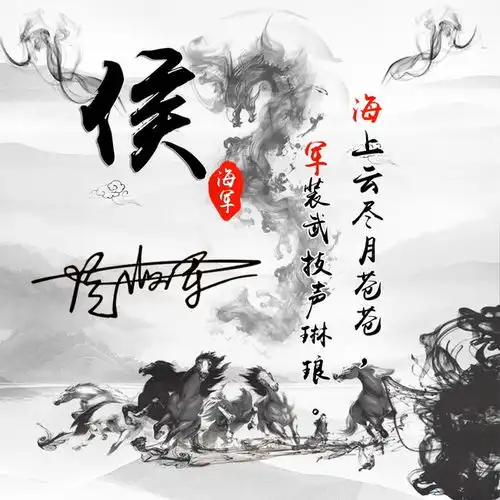 侯
海军
海上云尽月苍苍，
军装武技声琳琅。